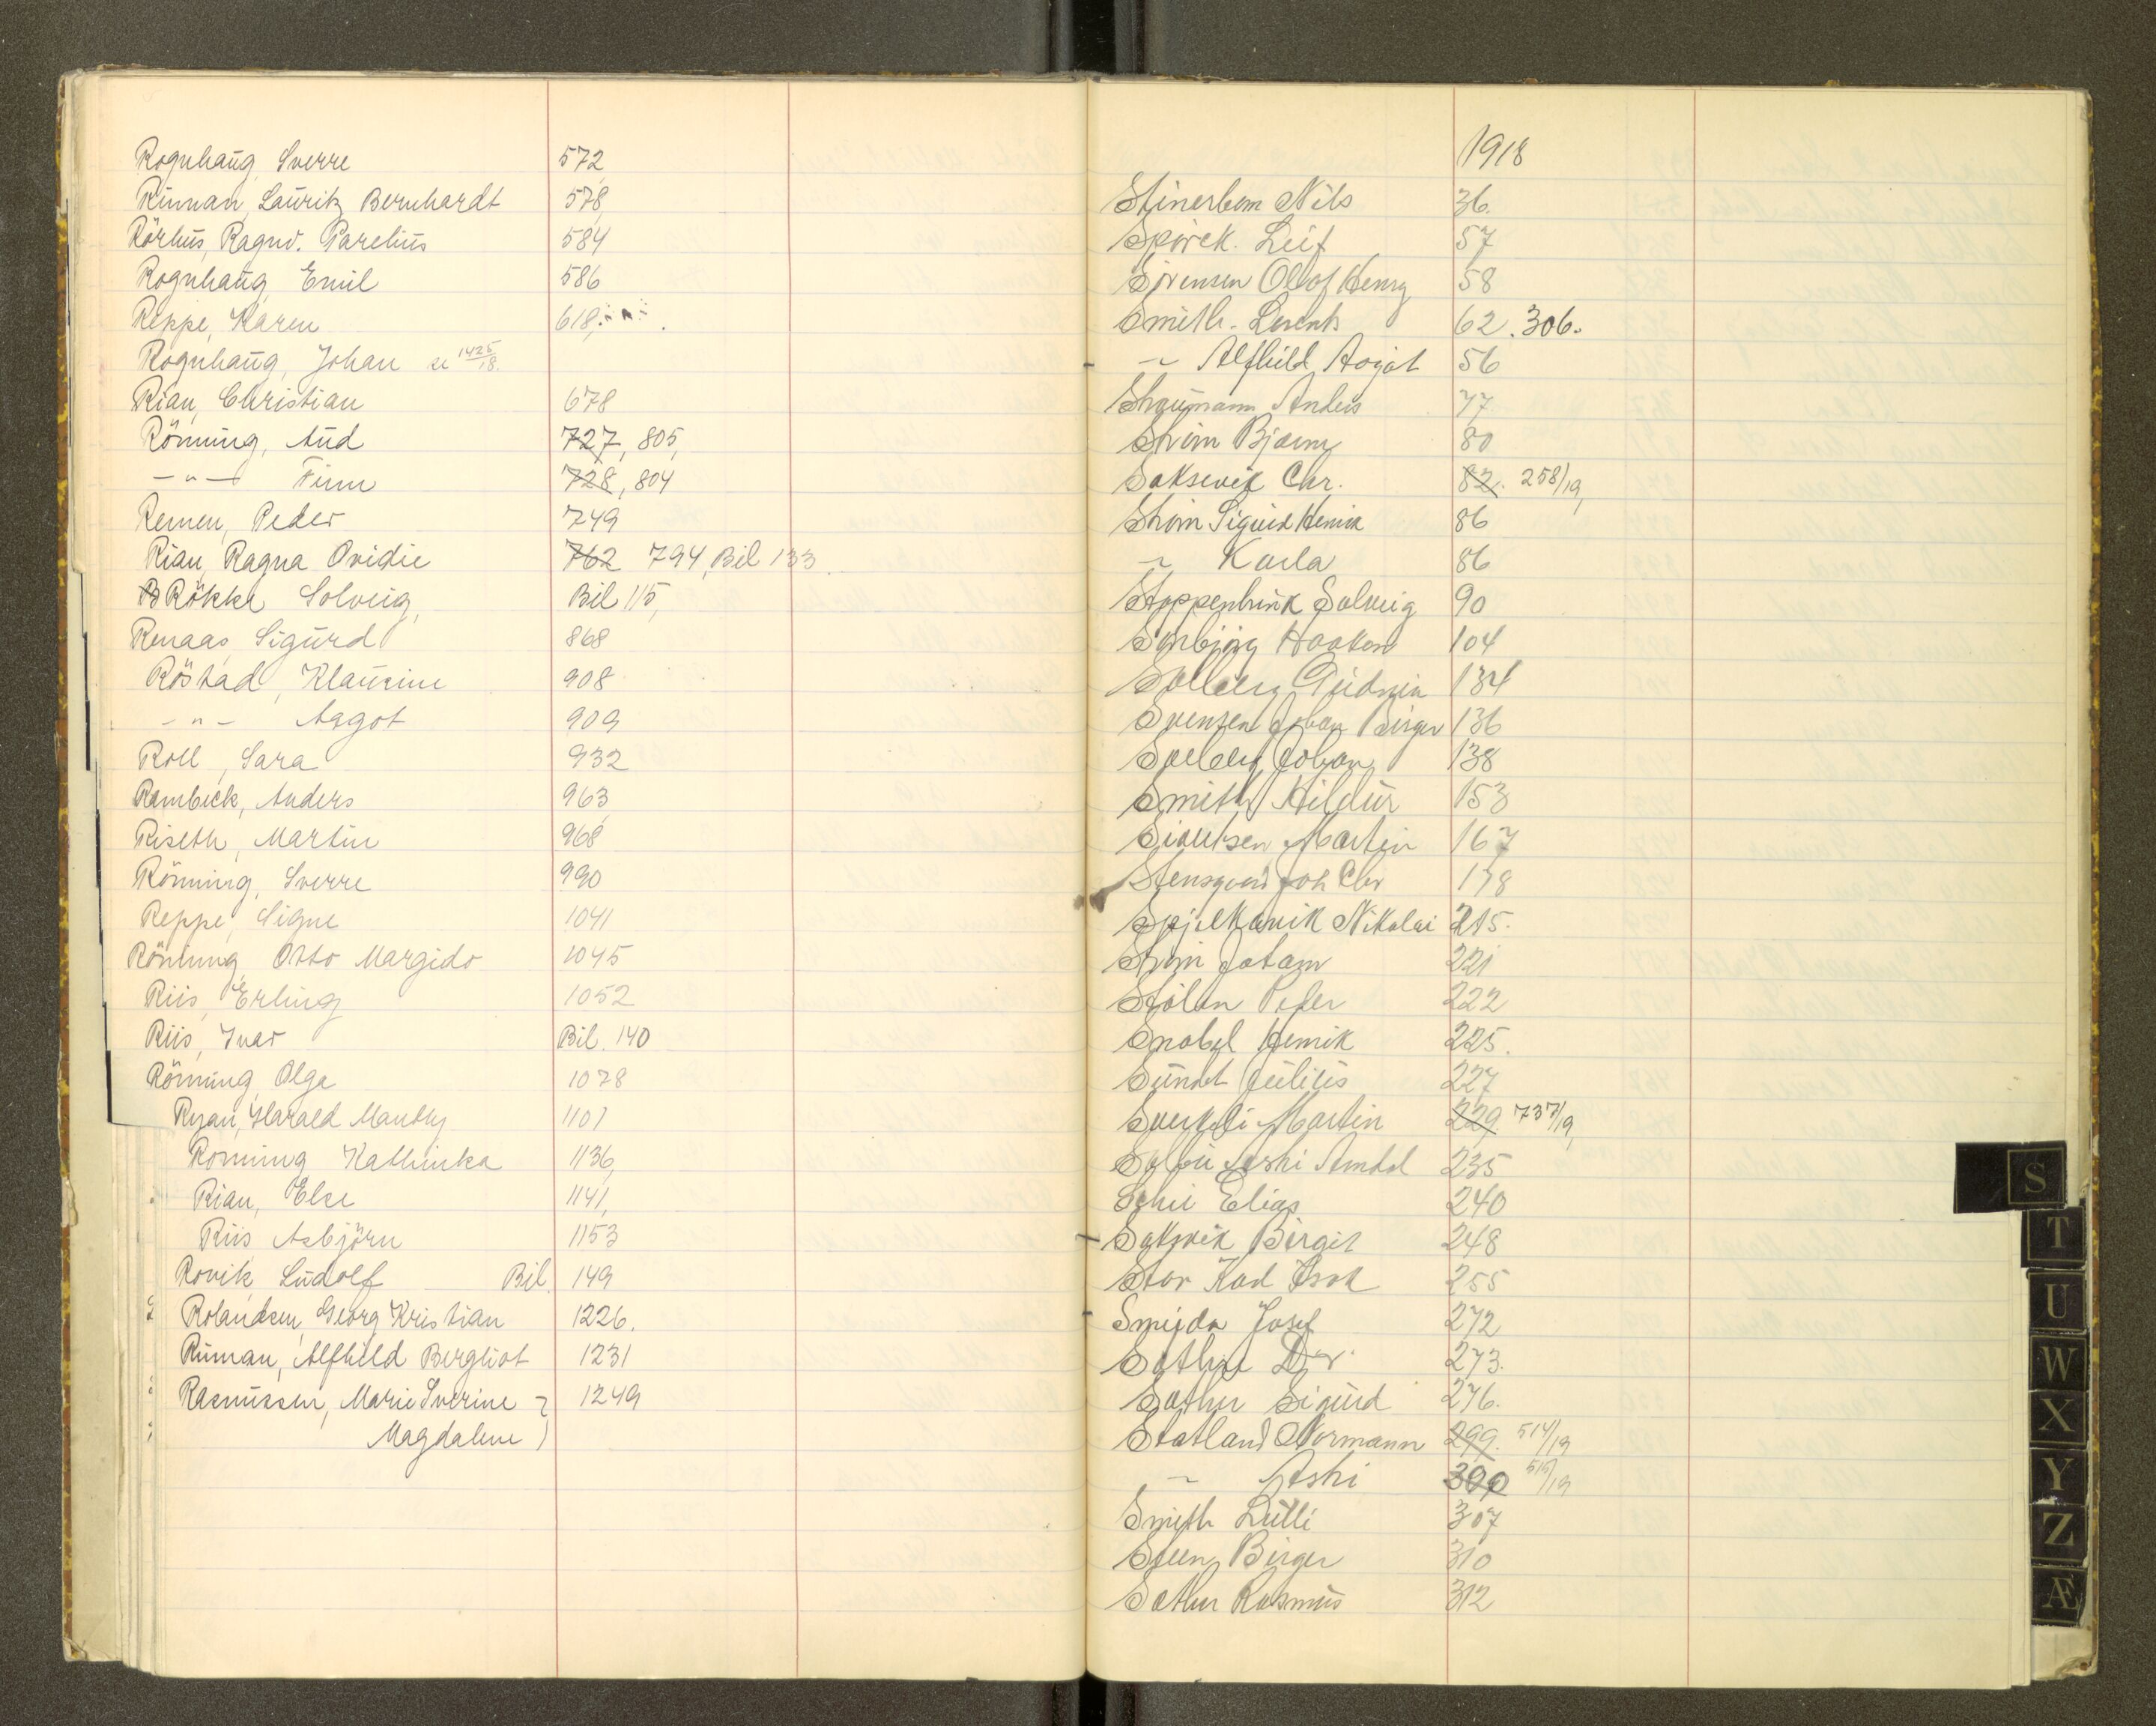 Rognhaug, Sverre 572
Rinnan, Lauritz Bernhardt 578
Rörhus, Ragnv. Parelius 584
Rognhaug, Emil 586
Reppe, Karen 618
Rognhaug, Johan se 1425/18.
Rian, Christian 678
Rönning, Aud 727, 805,
-"- Finn 728, 804
Remen, Peder 749
Rian, Ragna Ovidie 762 794, Bil 133
Rökke Solveig, Bil 115,
Renaas, Sigurd 868
Röstad, Klausine 908
-"- Aagot 909
Roll, Sara 932
Rambeck, Anders 963
Riseth, Martin 968
Rönning, Sverre 990
Reppe, Signe 1041
Rönning, Otto Margido 1045
Riis, Erling 1052
Riis, Ivar Bil. 140
Rönning, Olga 1078
Ryan, Harald Manthy 1101
Rönning Kathinka 1136,
Rian, Else 1141,
Riis Asbjörn 1153
Rovik, Ludolf Bil. 149
Rolandsen, Georg Kristian 1226.
Rinnan, Alfhild Bergliot 1231
Rasmussen, Marie Sverine 1249
Magdalene )
1918
Nils 36.
Leif 57
Sörensen Olaf Henry 58
Smith. Lorents 62. 306.
" Alfhild Aagot 56
Anders 77
Ström Bjarne 80
Saksvik Chr. 82. 258/19,
Ström Sigurd Henrik 86
" Karla 86
Stoppenbrink Solveig 90
Sörbjörg Haakon 104
Solberg Gudrun 134
Svensen Johan Birger 136
Solberg Johan 138
Smith Hildur 153
Sivertsen Martin 167
Stensgaard Joh Chr 178
Spjelkavik Nikolai 215.
Ström 221
Stölan Peter 222
Snabel Henrik 225.
Sundt Julius 227
Sverkli Martin 229 737/19,
Solbu 235
Elias 240
Saksvik Birgit 248
Stor 255
Smejda Josef 272
273.
Sæther Sigurd 276.
Statland Normann 299. 514/19
" 300 515/19
Smith Lulli 307
Steen Birger 310
Sæther Rasmus 312
S
T
U
W
X
Y
Z
Æ